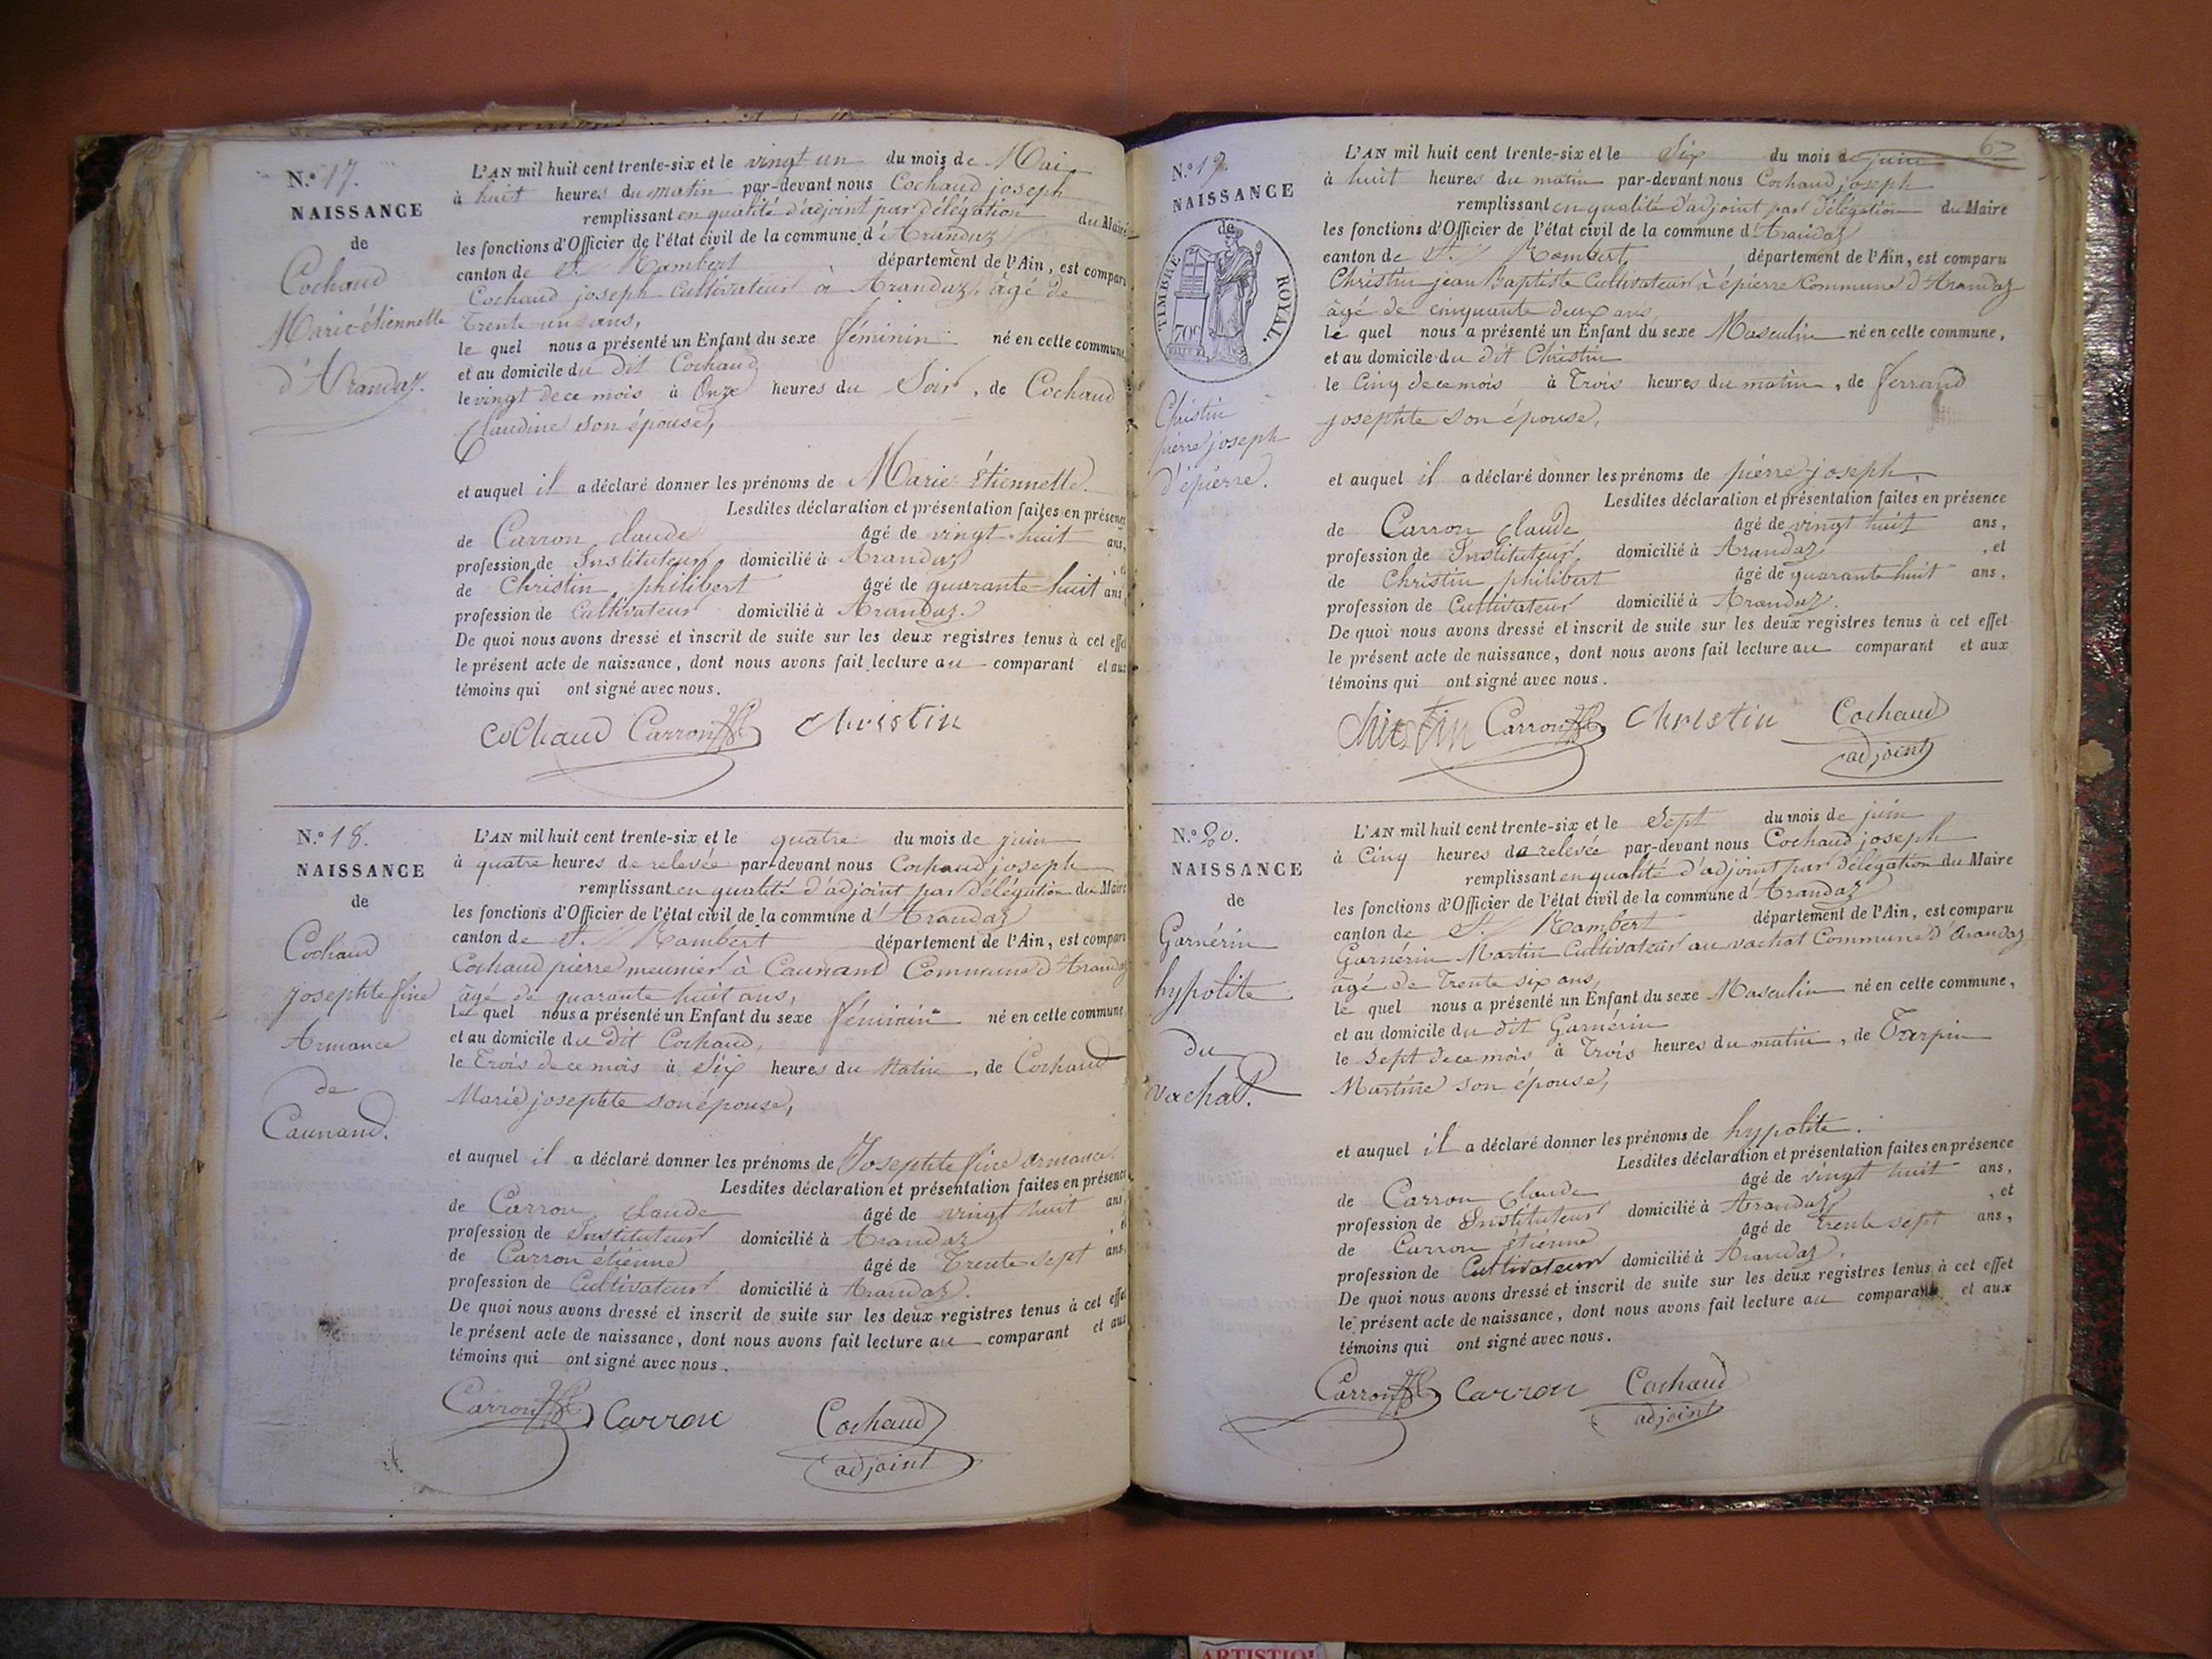 N.º 17.
NAISSANCE
de
Cochaud
Marie-étiennette
d'Arandaz.
L'AN mil huit cent trente-six et le vingt un du mois de Mai
à huit heures du matin par-devant nous Cochaud joseph
remplissant en qualité d'adjoint par délégation du Maire
les fonctions d'Officier de l'état civil de la commune d'Arandaz
canton de St. Rambert département de l'Ain, est comparu
Cochaud joseph Cultivateur à Arandaz, âgé de
Trente un ans,
le quel nous a présenté un Enfant du sexe féminin né en cette commune
et au domicile du dit Cochaud
le vingt de ce mois à Onze heures du Soir, de Cochaud
Claudine son épouse,
et auquel il a déclaré donner les prénoms de Marie Étiennette.
Lesdites déclaration et présentation faites en présence
de Carron claude âgé de vingt-huit ans,
profession de Instituteur domicilié à Arandaz
de Christin philibert âgé de quarante-huit ans,
profession de Cultivateur domicilié à Arandaz.
De quoi nous avons dressé et inscrit de suite sur les deux registres tenus à cet effet
le présent acte de naissance, dont nous avons fait lecture au comparant et aux
témoins qui ont signé avec nous.
Cochaud Carron Christin
N.º 18.
NAISSANCE
de
Cochaud
josephte fine
Armance
de
Caunand.
L'AN mil huit cent trente-six et le quatre du mois de juin
à quatre heures de relevée par-devant nous Cochaud joseph
remplissant en qualité d'adjoint par délégation du Maire
les fonctions d'Officier de l'état civil de la commune d'Arandaz
canton de St. Rambert département de l'Ain, est comparu
Cochaud pierre meunier à Caunand Commune d'Arandaz
âgé de quarante huit ans,
le quel nous a présenté un Enfant du sexe féminin né en cette commune
et au domicile du dit Cochaud,
le Trois de ce mois à Six heures du Matin, de Cochaud
Marie josephte son épouse,
et auquel il a déclaré donner les prénoms de Josephte fine Armance.
Lesdites déclaration et présentation faites en présence
de Carron claude âgé de vingt huit ans,
profession de Instituteur domicilié à Arandaz
de Carron étienne âgé de Trente sept ans,
profession de Cultivateur domicilié à Arandaz.
De quoi nous avons dressé et inscrit de suite sur les deux registres tenus à cet effet
le présent acte de naissance, dont nous avons fait lecture au comparant et aux
témoins qui ont signé avec nous.
Carron Carron Cochaud
adjoint
67
N.º 19.
NAISSANCE
de
TIMBRE ROYAL.
70c
Christin
pierre joseph
d'épierre.
L'AN mil huit cent trente-six et le Six du mois de juin
à huit heures du matin par-devant nous Cochaud joseph
remplissant en qualité d'adjoint par délégation du Maire
les fonctions d'Officier de l'état civil de la commune d'Arandaz
canton de St. Rambert, département de l'Ain, est comparu
Christin jean Baptiste Cultivateur à épierre Commune d'Arandaz
âgé de cinquante deux ans,
le quel nous a présenté un Enfant du sexe Masculin né en cette commune,
et au domicile du dit Christin
le Cinq de ce mois à Trois heures du matin, de ferrand
josephte son épouse,
et auquel il a déclaré donner les prénoms de pierre joseph.
Lesdites déclaration et présentation faites en présence
de Carron Claude âgé de vingt huit ans,
profession de Instituteur domicilié à Arandaz, et
de Christin philibert âgé de quarante huit ans,
profession de Cultivateur domicilié à Arandaz.
De quoi nous avons dressé et inscrit de suite sur les deux registres tenus à cet effet
le présent acte de naissance, dont nous avons fait lecture au comparant et aux
témoins qui ont signé avec nous.
Christin Carron Christin Cochaud
adjoint
N.º 20.
NAISSANCE
de
Garnérin
hypolite
du
vachat.
L'AN mil huit cent trente-six et le Sept du mois de juin
à Cinq heures de relevée par-devant nous Cochaud joseph
remplissant en qualité d'adjoint par délégation du Maire
les fonctions d'Officier de l'état civil de la commune d'Arandaz
canton de St. Rambert département de l'Ain, est comparu
Garnérin Martin Cultivateur au vachat Commune d'Arandaz
âgé de Trente six ans,
le quel nous a présenté un Enfant du sexe Masculin né en cette commune,
et au domicile du dit Garnérin
le Sept de ce mois à Trois heures du matin, de Trarpin
Martine son épouse,
et auquel il a déclaré donner les prénoms de hypolite.
Lesdites déclaration et présentation faites en présence
de Carron Claude âgé de vingt huit ans,
profession de Instituteur domicilié à Arandaz, et
de Carron étienne âgé de trente sept ans,
profession de Cultivateur domicilié à Arandaz.
De quoi nous avons dressé et inscrit de suite sur les deux registres tenus à cet effet
le présent acte de naissance, dont nous avons fait lecture au comparant et aux
témoins qui ont signé avec nous.
Carron Carron Cochaud
adjoint